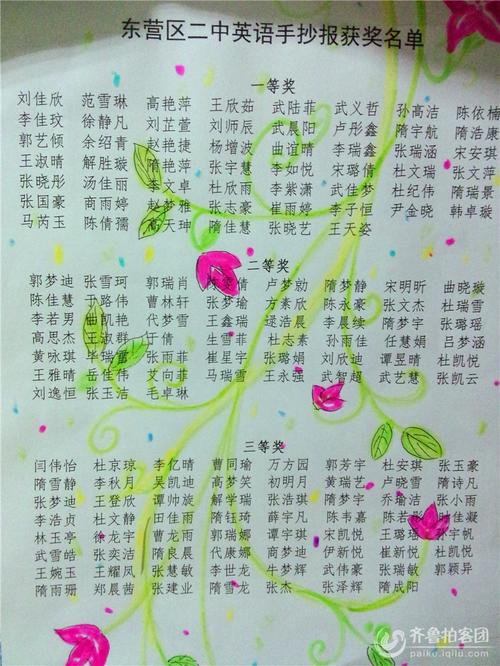 东营区二中英语手抄报获奖名单
一等奖
刘佳欣 范雪琳 高艳萍 王欣茹 武陆菲 武义哲 孙高洁 陈依楠
李佳玟 徐静凡 刘芷萱 刘师辰 武晨阳 卢彤鑫 隋宇航 隋浩康
郭艺倾 余绍青 赵艳捷 杨增波 曲谊晴 李瑞鑫 张瑞涵 宋安琪
王淑晴 解胜璇 隋艳萍 张宇慧 李如悦 宋璐倩 杜文瑞 张文萍
张晓彤 汤佳丽 李文卓 杜欣雨 李紫潇 武佳梦 杜纪伟 隋瑞景
张国豪 商雨婷 赵梦雅 张志豪 崔雨婷 李子恒 尹金晓 韩卓璇
马芮玉 陈倩孺 高天珅 隋佳慧 张晓艺 王天姿
二等奖
郭梦迪 张雪珂 郭瑞肖 倩 卢梦勍 隋梦静 宋明昕 曲晓璇
陈佳慧 于路伟 曹林轩 张梦瑜 方素欣 陈永豪 张文杰 杜瑞雪
李若男 曲凯艳 代梦雪 王鑫瑞 逯浩晨 李晨续 隋梦宇 张璐瑶
高思杰 王淑群 于倩 生雪菲 杜志素 孙雨佳 任慧娟 吕梦涵
黄咏琪 毕瑞 张雨菲 崔星宇 张璐娟 刘欣迪 谭昱晴 杜凯悦
王雅晴 岳佳伟 艾向菲 马瑞雪 王永强 武智超 武艺慧 张凯云
刘逸恒 张玉洁 毛卓琳
三等奖
闫伟怡 杜京琼 李亿晴 曹同瑜 万方园 郭芳宇 杜安琪 张玉豪
隋雪静 李秋月 吴凯迪 高梦笑 初明月 黄瑞艺 卢晓雪 隋诗凡
张梦迪 王登欣 谭帅旋 解学瑞 张浩琪 隋梦宇 乔瑜洁 张小雨
李浩贞 杜文静 田佳雨 隋钰琦 薛宇凡 陈韦嘉 陈若 时佳凝
林玉亭 徐龙宇 曹龙雨 郭瑞娜 谭宇琪 宋凯悦 王璐瑶 张宇帆
武雪皓 张奕洁 隋良晨 代康娜 商梦迪 伊新悦 崔新悦 杜凯悦
王婉玉 王耀凤 张慧敏 李世龙 牛梦辉 武伟豪 张瑞敏 郭颖异
隋雨珊 郑晨茜 张建业 隋雪龙 张杰 张泽辉 隋成阳
齐鲁拍客团
paike.iqilu.com